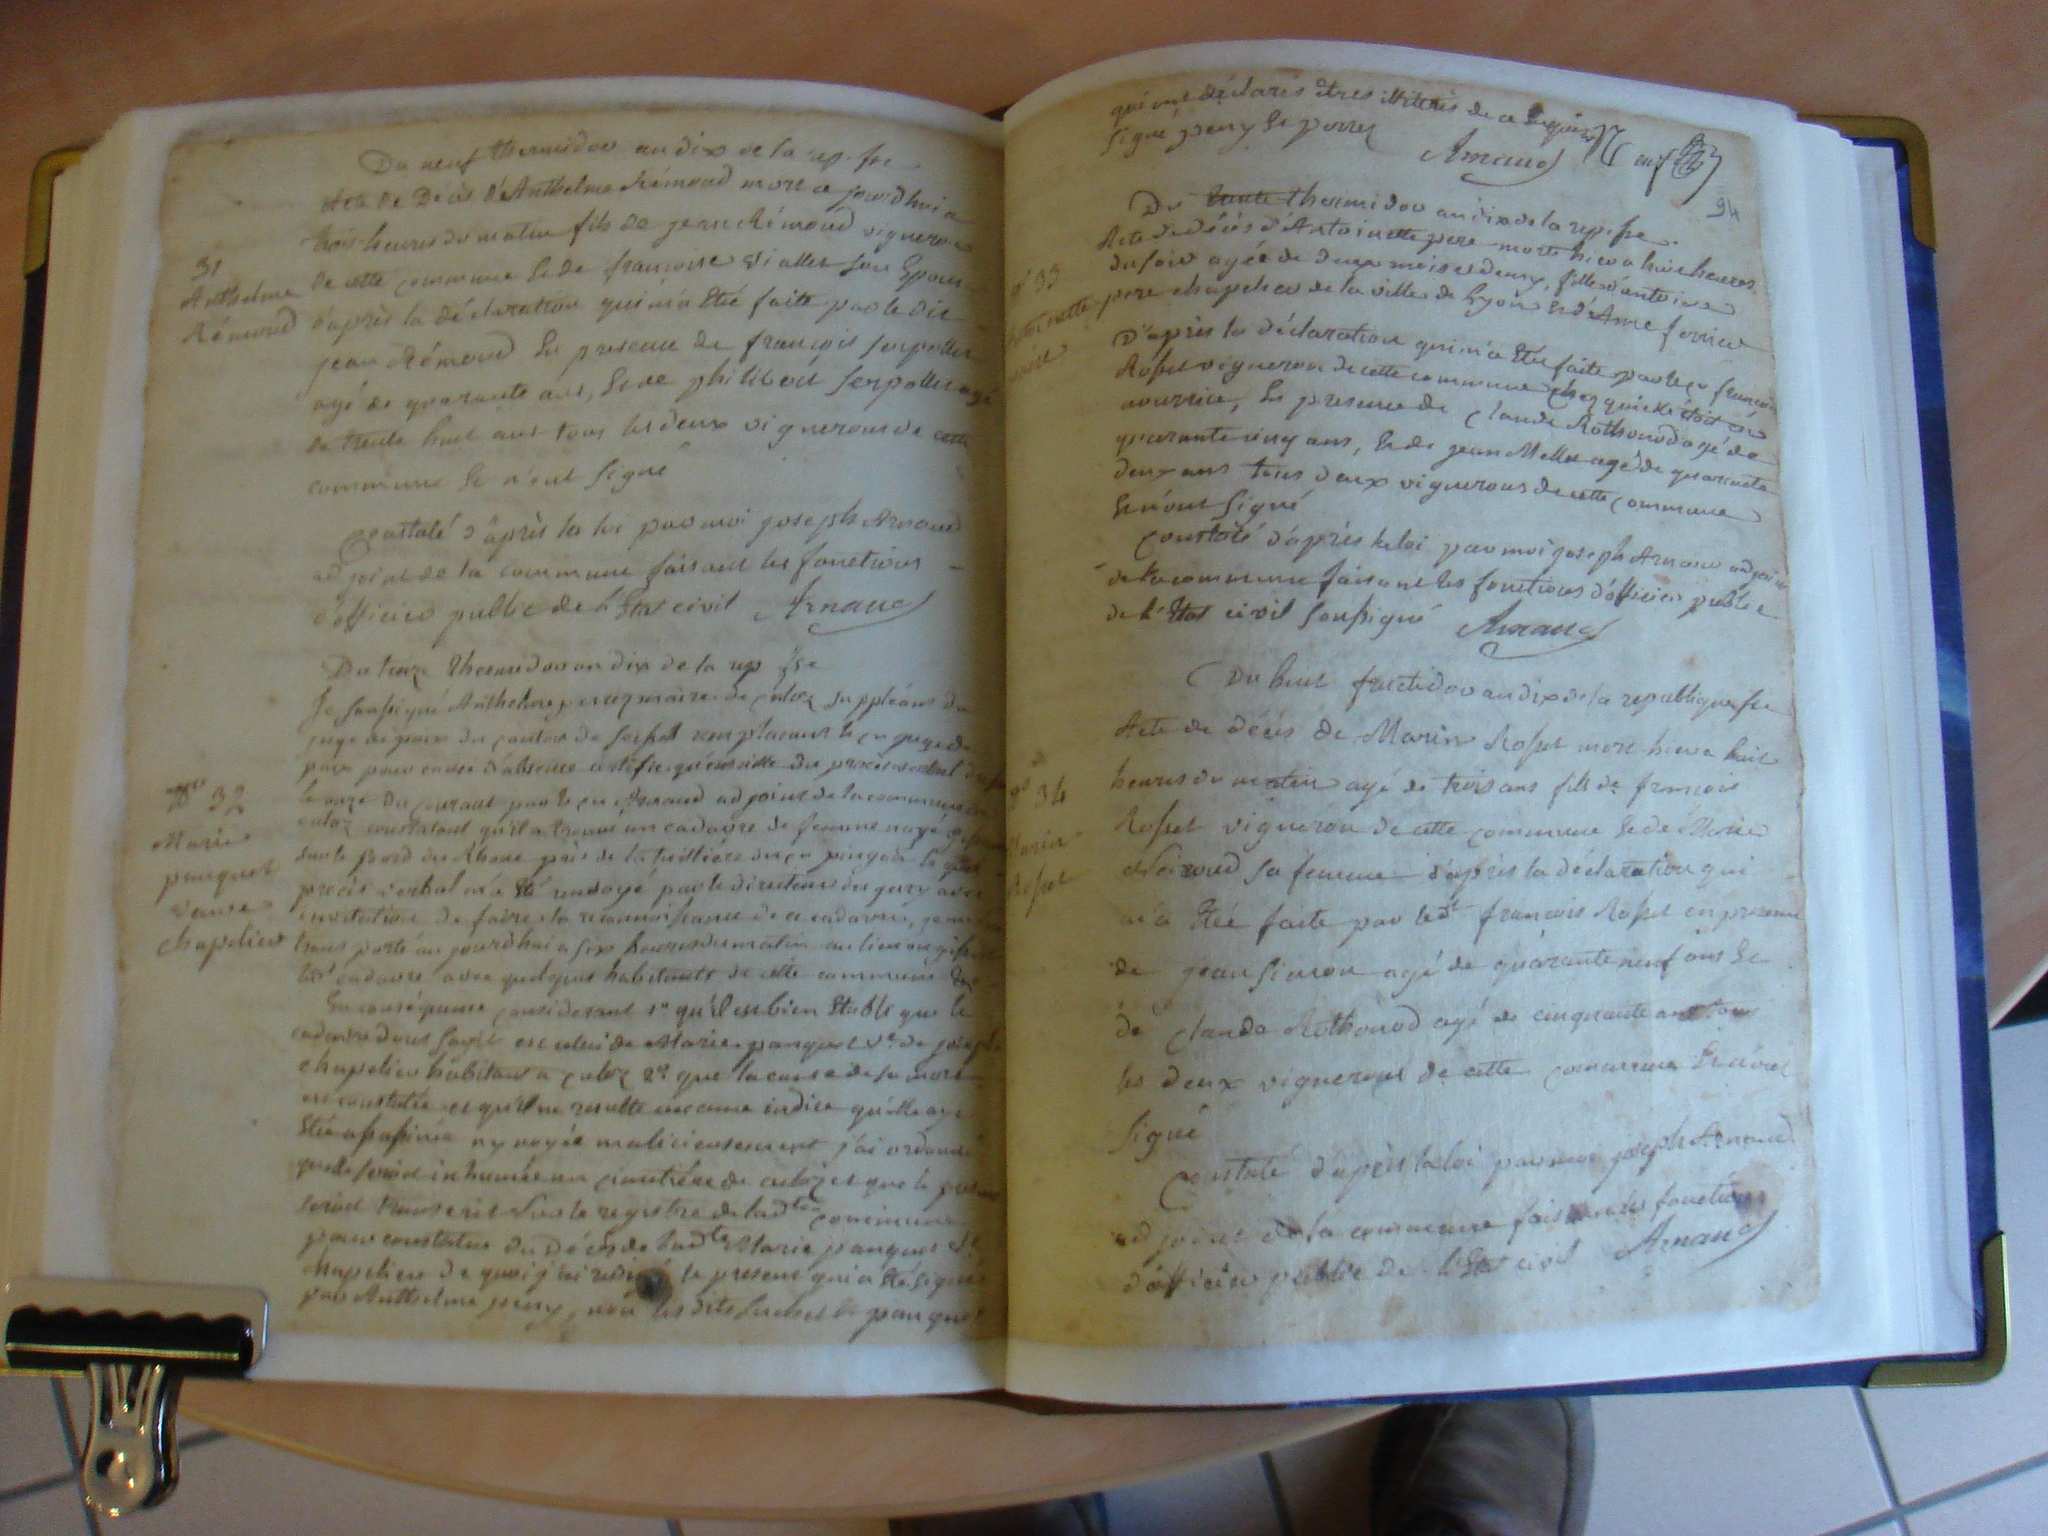 Du neuf thermidor an dix de la rep. fse
Acte de Décès d'Anthelme Rémond mort ce jourd'hui a
trois heures du matin fils de jean Rémond vigneron
31
Anthelme
Rémond
de cette commune Et de francoise Viallet son Epouse
d'après la déclaration qui m'a Eté faite par le dit
jean Rémond En presence de françois serpollet
agé de quarante ans, Et de philibert serpollet agé
de trente huit ans tous les deux vignerons de cette
commune Et n'ont signé
Constaté d'après la loi par moi joseph Arnaud
adjoint de la commune faisant les fonctions
d'officier public de l'Etat civil Arnaud
Du treize thermidor an dix de la rep fse
Je soussigné Anthelme maire de culoz suppléant du
juge de paix du canton de seyssel remplacant le cn juge de
paix pour cause d'absence certifie qu'ensuite du procès verbal
N° 32
Marie
panquet
veuve
chapelier
le onze du courant par le cn Arnaud adjoint de la commune de
culoz constatant qu'il a trouvé un cadavre de femme noyé
sur le bord du Rhone près de la
procès verbal m'a Eté envoyé par le directeur du jury avec
invitation de faire la reconnoissance de ce cadavre, je me suis
transporté au jourd'hui a six heures du matin au lieu ou
led' cadavre avec quelques habitants de cette commune
En conséquence considerant 1° qu'il est bien Etabli que le
cadavre est celui de Marie panquet Ve de joseph
chapelier habitant a culoz 2° que la cause de sa mort
est constatée et qu'il ne resulte aucune indice qu'elle aye
Eté assassinée ny noyée malicieusement j'ai ordonné
quelle seroit inhumée au cimetière de culoz et que le présent
seroit transcrit sur le registre de ladte commune
pour constater du Décès de ladte Marie panquet Ve
chapelier de quoi j'ai redigé le present qui a Eté signé
par Anthelme peny, non les dits panquet
qui ont déclarés être illiterés de ce
signé peny Et
Arnaud
94
Du trente thermidor an dix de la rep. fse
Acte de décès d'Antoinette pere morte hier a huit heures
n° 33
Antoinette
du soir agée de deux mois et demy, fille d'antoine
pere chapelier de la ville de Lyon Et d'Anne
D'après la déclaration qui m'a Eté faite par le cn francois
Rosset vigneron de cette commune chez qui elle étoit en
nourrice, En presence de claude Rothonod agé de
quarante cinq ans, Et de jean Mellet agé de quarante
deux ans tous deux vignerons de cette commune
Et n'ont signé
Constaté d'après la loi par moi joseph Arnaud adjoint
de la commune faisant les fonctions d'officier public
de l'Etat civil soussigné Arnaud
Du huit fructidor an dix de la republique fse
Acte de décès de Marin Rosset mort hier a huit
n° 34
Marin
Rosset
heures du matin agé de trois ans fils de francois
Rosset vigneron de cette commune Et de Marie
sa femme d'après la déclaration qui
m'a Eté faite par led' françois Rosset en presence
de jean Simon agé de quarante neuf ans Et
de claude Rothonod agé de cinquante ans tous
les deux vignerons de cette commune Et n'ont
signé
Constaté d'après la loi par moi joseph Arnaud
adjoint de la commune faisant les fonctions
d'officier public de l'Etat civil Arnaud